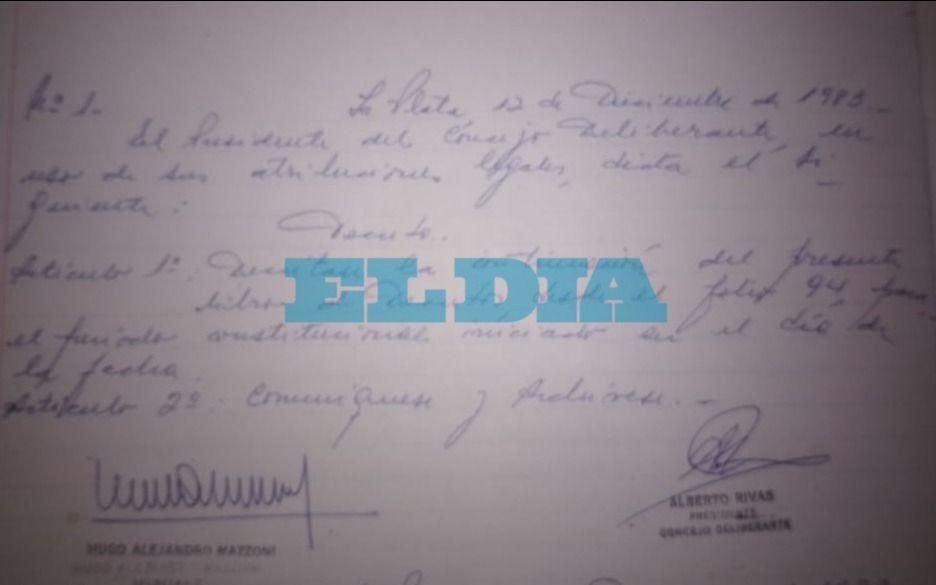 Nº 1. La Plata, 12 de Diciembre de 1983.-
El Presidente del Concejo Deliberante, en
uso de sus atribuciones legales, dicta el si_
guiente:
Decreto.
Artículo 1º. la continuación del presente
libro de Decretos, desde el folio 94 para
el período constitucional iniciado en el día de
la fecha.
Artículo 2º. Comuníquese y Archívese.-
EL DIA
ALBERTO RIVAS
PRESIDENTE
CONCEJO DELIBERANTE
HUGO ALEJANDRO MAZZONI